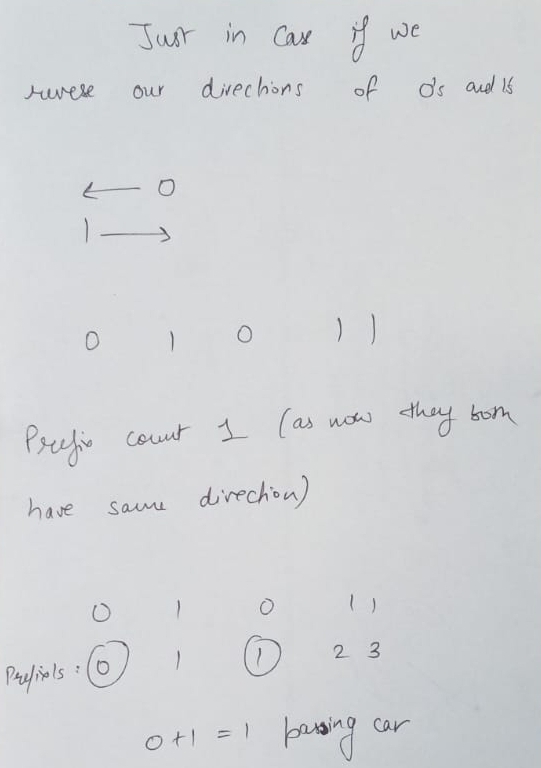 Just in Case if we
reverse our directions of 0's and 1s
← 0
1 →
0 1 0 1 1
Prefix count 1 (as now they both
have same direction)
0 1 0 1 1
Prefix1s : 0 1 1 2 3
0 + 1 = 1 passing car